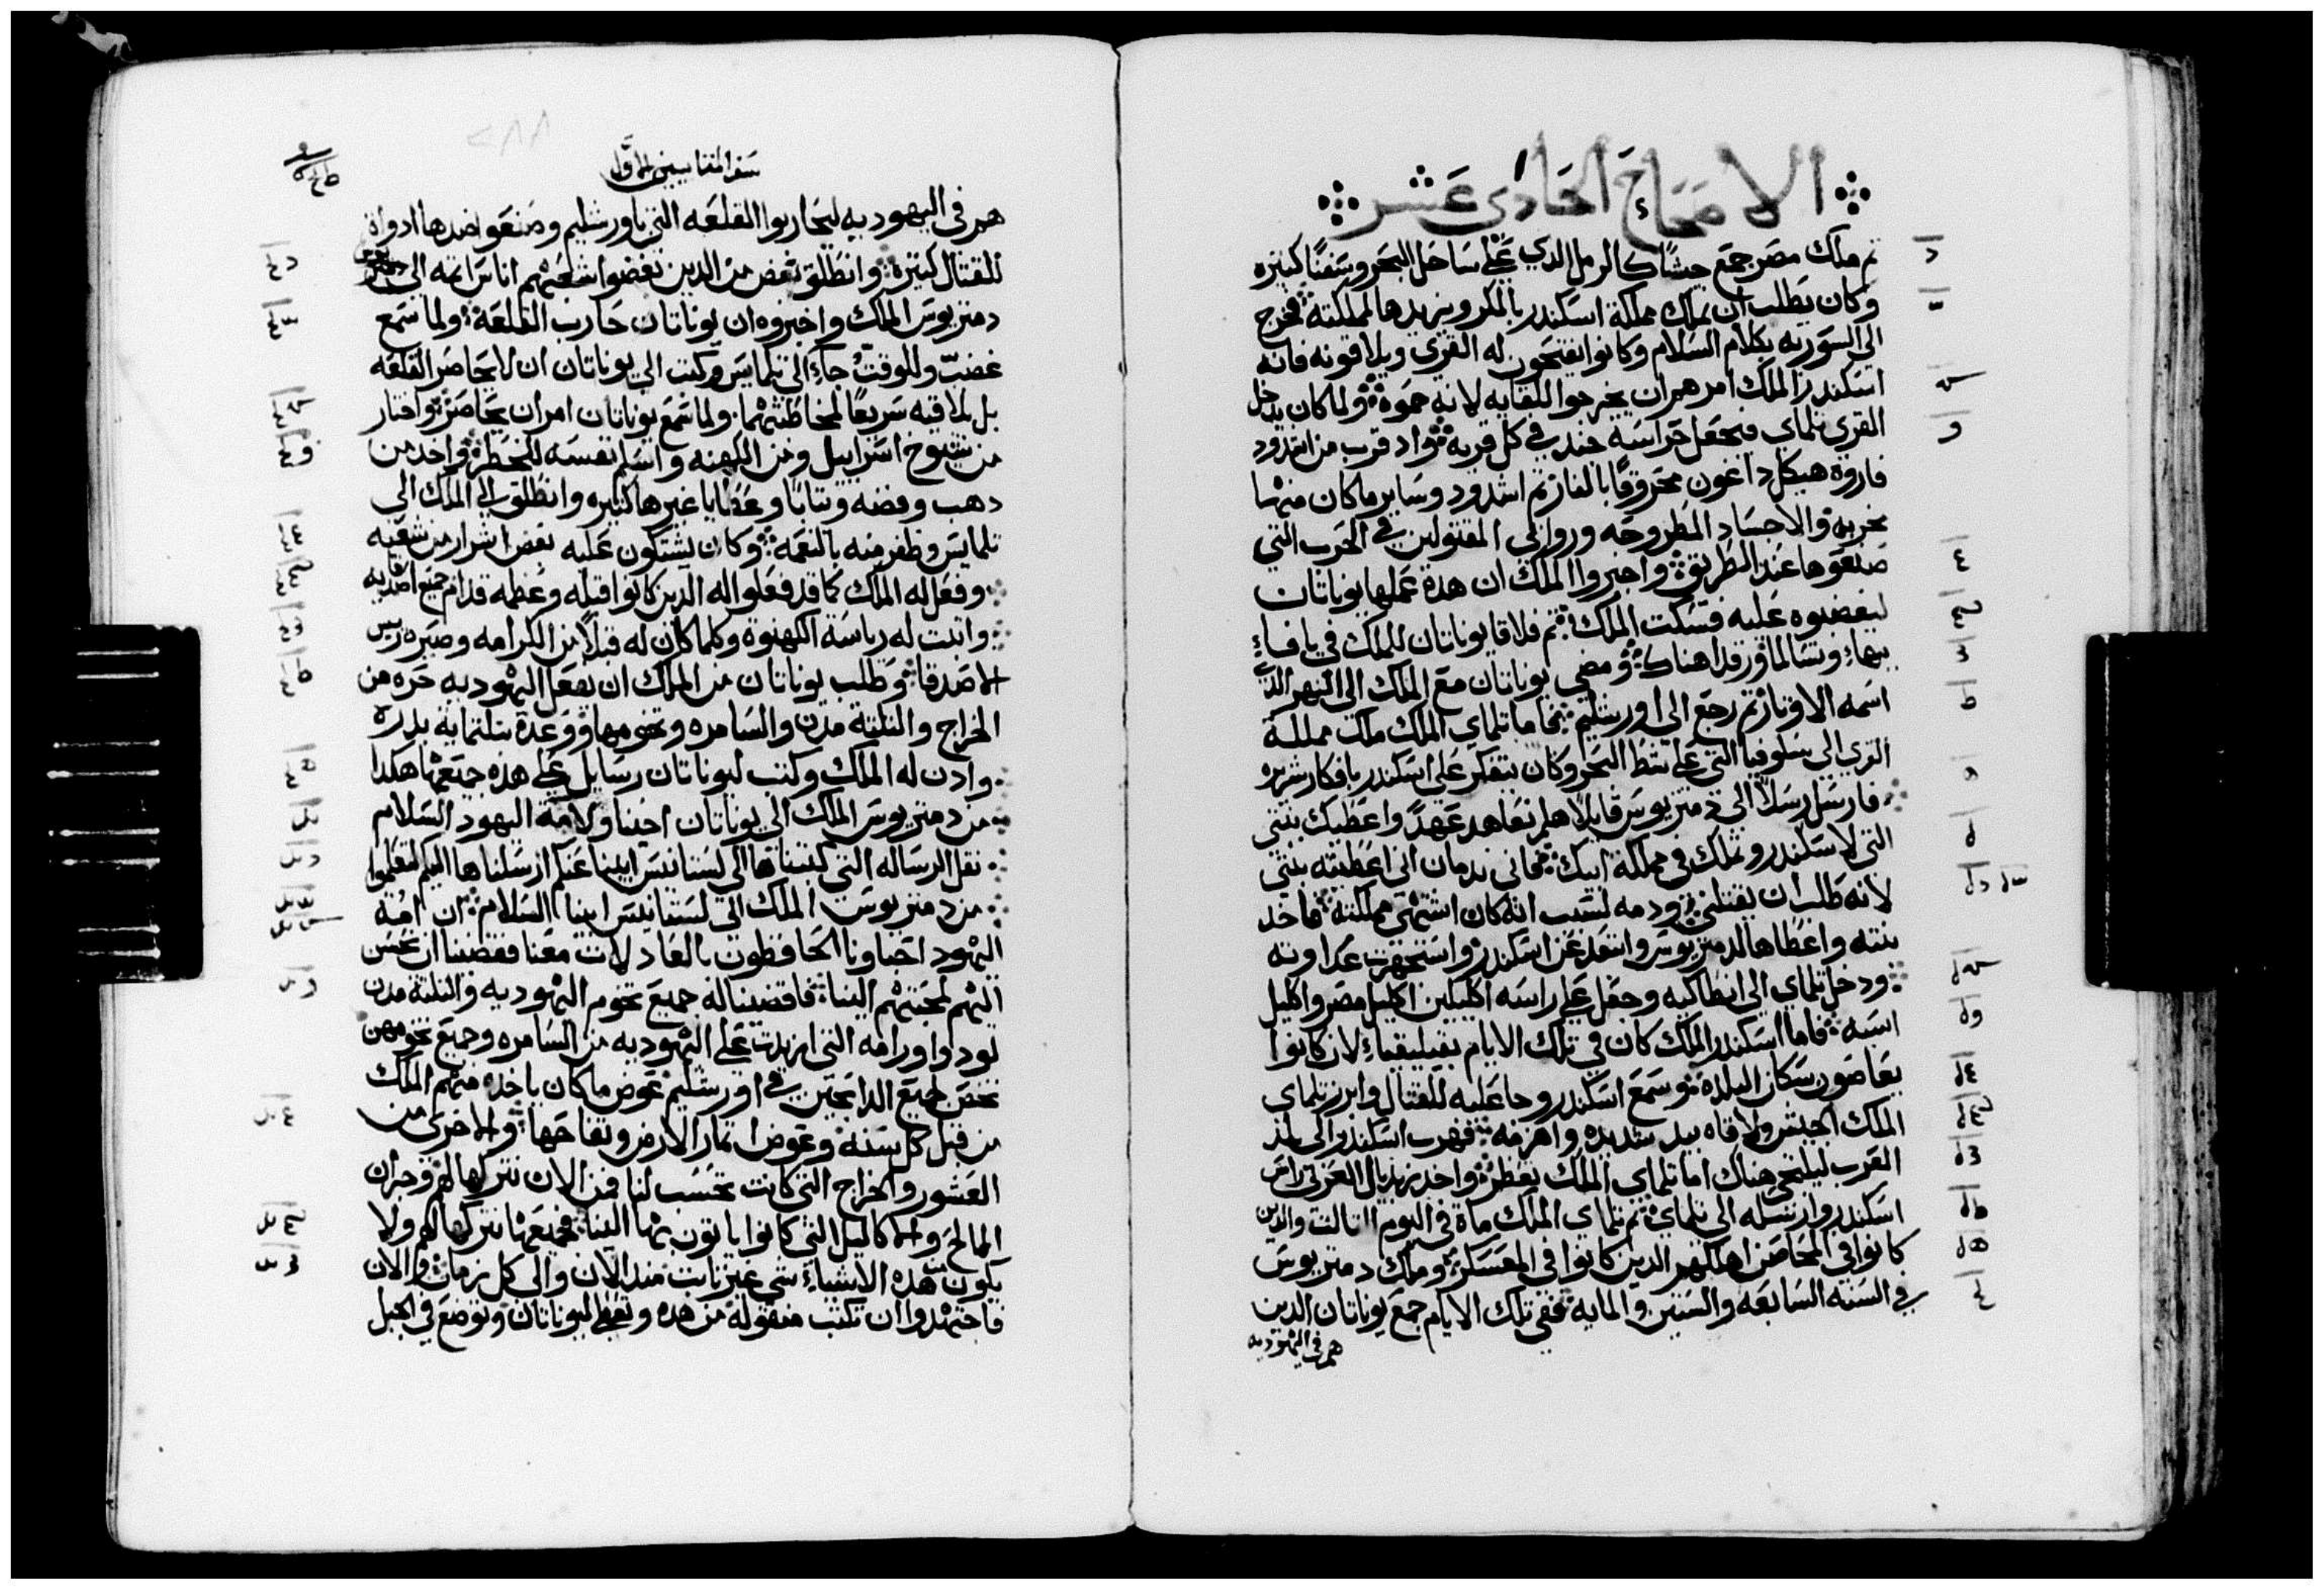 الاصحاح الحادي عشر
تم ملك مصر جمع جيشًا كالرمل الدي علي ساحل البحر وسفنًا كتيره
وكان يطلب ان يملك مملكة اسكندر بالمكر ويزيدها لمملكته فخرج
الي السوريه بكلام السلام وكانوا يفتحون له القري ويلاقونه فانه
اسكندر الملك امرهم ان يخرجوا للقايه لانه حموه ولما كان يدخل
القري تلماي فيجعل حراسه جند في كل قريه واد قرب من اشدود
فاروه هيكل داغون محروقًا بالنار تم اشدود وساير ما كان منها
مخربه والاجساد المطروحه وروابي المقتولين في الحرب التي
صنعوها عند الطريق واخبروا الملك ان هده عملها يوناتان
ليغضبوه عليه فسكت الملك تم فلاقا يوناتان للملك في يافاء
ببهاء وتسالما ورقدا هناك ومضي يوناتان مع الملك الي النهر الدي
اسمه الاوتار تم رجع الي اورشليم فاما تلماي الملك ملك مملكة
القري الي سلوقيا التي علي شط البحر وكان يتفكر علي اسكندر بافكار شريره
فارسل رسلاً الي دمتريوس قايلاً هلم نعاهد عهدًا واعطيك بنتي
التي لاسكندر وتملك في مملكة ابيك فاني ندمان اني اعطيته بنتي
لانه طلب ان يقتلني ودمه لسبب انه كان اشتهي مملكته فاخد
بنته واعطاها لدمتريوس وابتعد عن اسكندر واستجهرت عداوته
ودخل تلماي الي انطاكيه وجعل علي راسه اكليلين اكليل مصر واكليل
اسيه فاما اسكندر الملك كان في تلك الايام بقيليقياء لان كانوا
يعاصون سكان البلده وسمع اسكندر وجا عليه للقتال وابرز تلماي
الملك الجيش ولاقاه بيد شديده واهزمه فهرب اسكندر الي بلد
العرب ليلتجي هناك اما تلماي الملك تعظم واخد زبديال العربي راس
اسكندر وارسله الي تلماي تم تلماي الملك مات في اليوم التالت والدين
كانوا في المحاصن اهلكهم الدين كانوا في المعسكر وملك دمتريوس
في السنه السابعه والستين والمايه ففي تلك الايام جمع يوناتان الدين
هم في اليهوديه
سفر المقابيين الاول
هم في اليهوديه ليحاربوا القلعه التي باورشليم وصنعوا ضدها ادواة
للقتال كتيره وانطلق بعض من الدين بغضوا شعبهم اناس اتمه الي
دمتريوس الملك واخبروه ان يوناتان حارب القلعة ولما سمع
غضب وللوقت جاء الي تلمايس وكتب الي يوناتان ان لا يحاصر القلعه
بل يلاقيه سريعًا لمخاطبتهما ولما سمع يوناتان امر ان يحاصر واختار
من شيوخ اسراييل ومن الكهنه واسلم نفسه للخطر واخد من
دهب وفضه وتيابًا وعطايا غيرها كتيره وانطلق الي الملك الي
تلمايس وظفر منه بالنعمه وكان يشتكون عليه بعض اشرار من شعبه
وفعل له الملك كما قد فعلوا له الدين كانوا قبله وعظمه قدام جميع اصدقايه
واتبت له رياسة الكهنوة وكلما كان له قبلاً من الكرامه وصيره رييس
الاصدقا وطلب يوناتان من الملك ان يجعل اليهوديه حره من
الخراج والتلتة مدن والسامره وتخومها ووعده بتلتمايه بدره
وادن له الملك وكتب ليوناتان رسايل علي هده جميعها هكدا
من دمتريوس الملك الي يوناتان اخينا ولامة اليهود السلام
نقل الرساله التي كتبناها الي لستانيس ابينا عنكم ارسلناها اليكم لتعلموا
من دمتريوس الملك الي لستانيس ابينا السلام ان امة
اليهود احباونا الحافظون بالعادلات معنا فقضينا ان نحسن
اليهم لمحبتهم الينا فاقضينا له جميع تخوم اليهوديه والتلتة مدن
لودا وا ورامه التي ازيدت علي اليهوديه من السامره وجميع تخومهن
تختص لجميع الدابحين في اورشليم عوض ما كان ياخده منهم الملك
من قبل كل سنه وعوض اتمار الارض وتفاحها والاخري من
العشور والخراج التي كانت تحسب لنا فمن الان نتركها لهم وجران
المالح والاكاليل التي كانوا ياتون بها الينا فجميعها نتركها لهم ولا
يكون هده الاشياء شي غير تابت مند الان والي كل زمان والان
فاجتهدوا ان تكتب منقولة من هده وتعطي ليوناتان وتوضع في الجبل